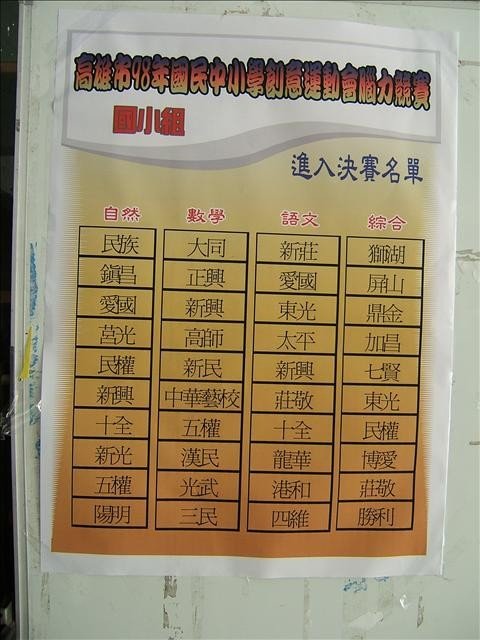 高雄市98年國民中小學創意運動會腦力競賽
國小組
進入決賽名單
自然 數學 語文 綜合
民族 大同 新莊 獅湖
鎮昌 正興 愛國 屏山
愛國 新興 東光 鼎金
莒光 高師 太平 加昌
民權 新民 新興 七賢
新興 中華藝校 莊敬 東光
十全 五權 十全 民權
新光 漢民 龍華 博愛
五權 光武 港和 莊敬
陽明 三民 四維 勝利